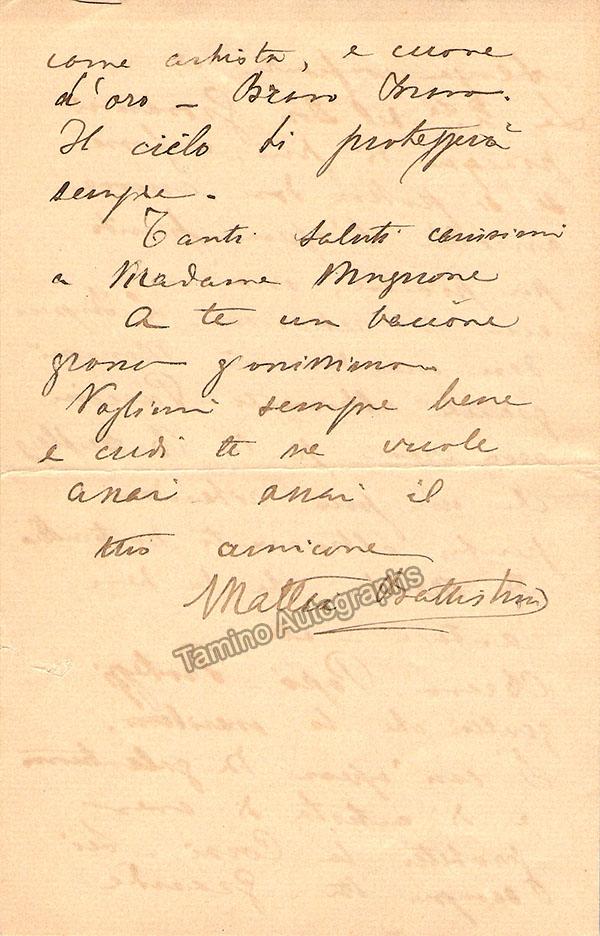 come artista, e cuore
d'oro - Bravo Bravo.
Il cielo ti proteggerà
sempre.
Tanti saluti carissimi
a Madame Mugnone
A te un bacione
grande grandissimo.
Vogliimi sempre bene
e credi te ne vuole
assai assai il
tuo amicone
Mattia Battistini
Tamino Autographs